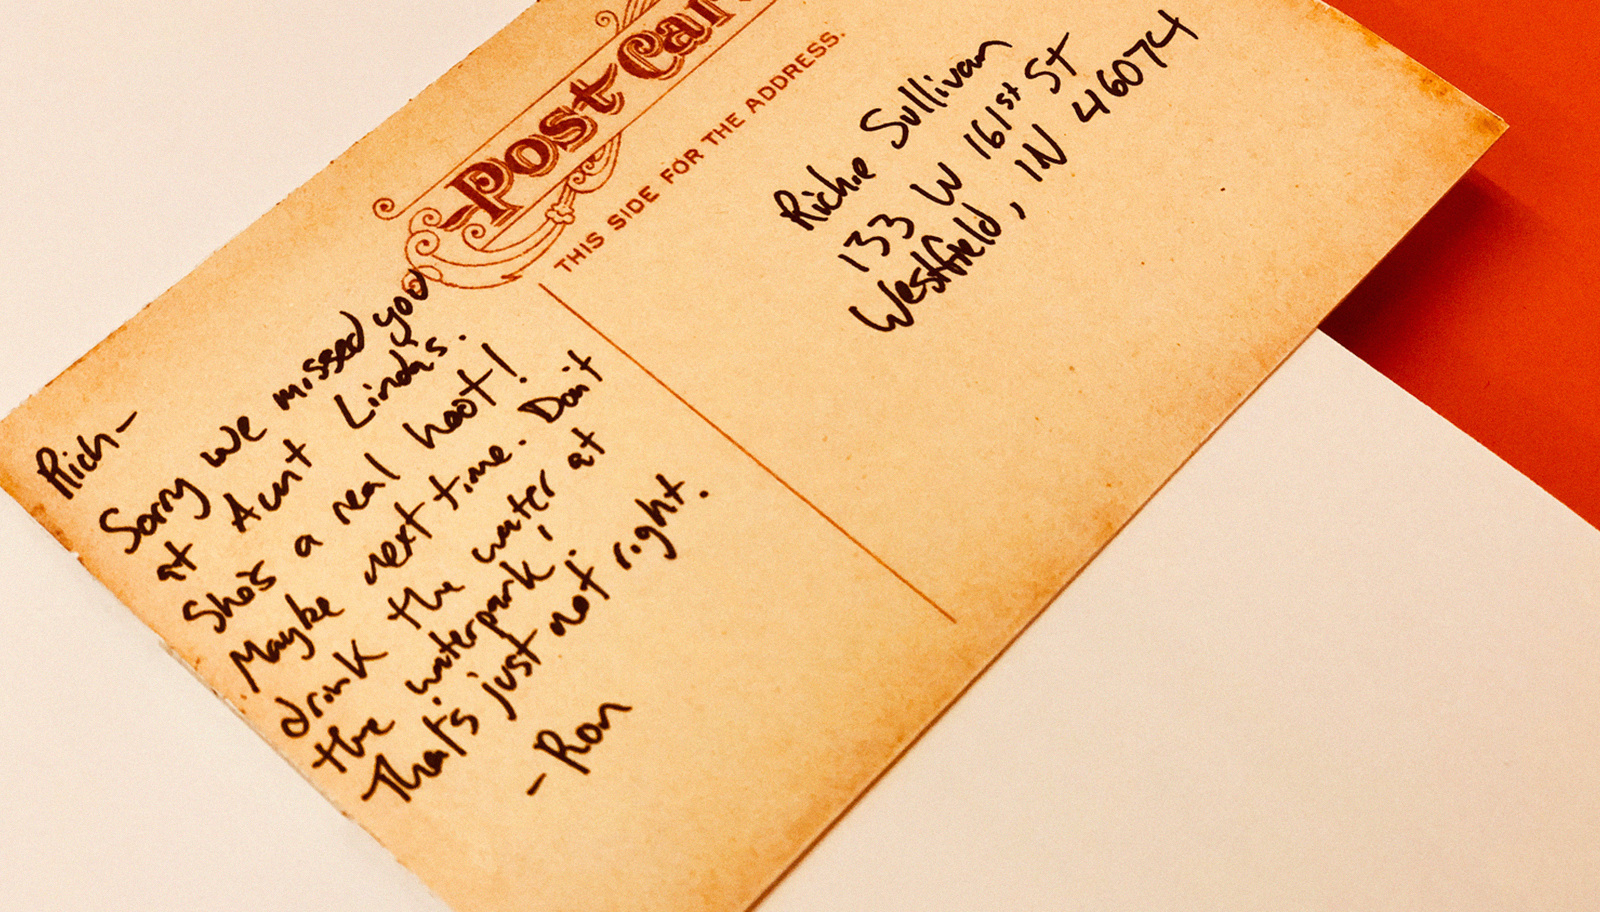 Post Car
THIS SIDE FOR THE ADDRESS.
Rich-
Sorry we missed you
at Aunt Linda's.
She's a real hoot!
Maybe next time. Don't
drink the water at
the waterpark,
That's just not right.
- Ron
Richie Sullivan
133 W 161st St
Westfield, IN 46074